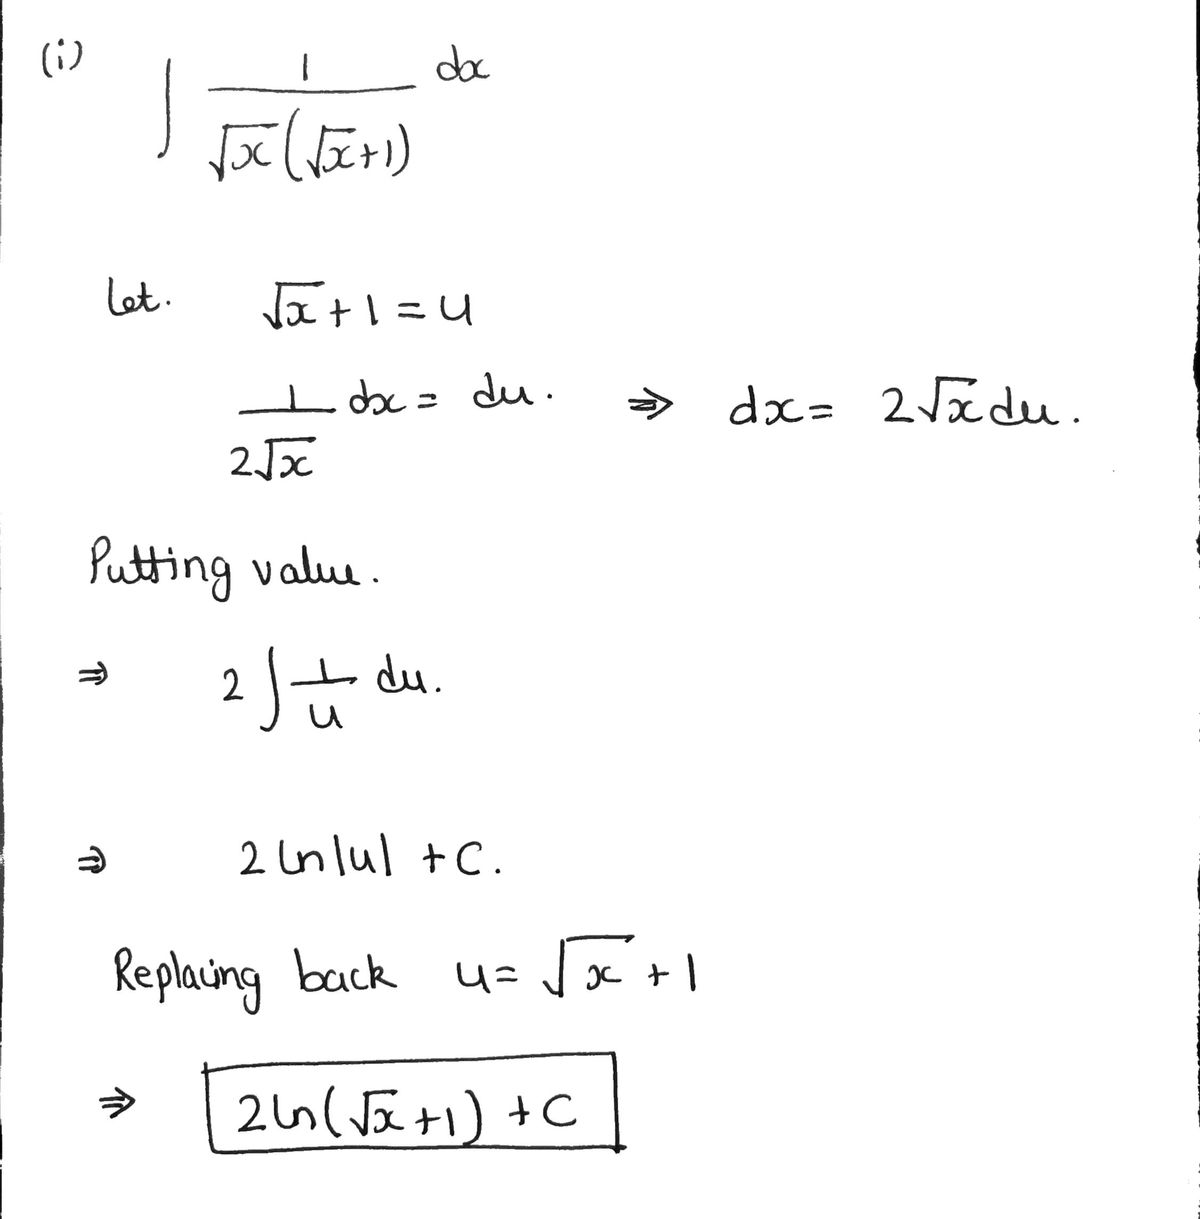 (i) ∫ 1/(√x(√x+1)) dx
Let. √x+1=u
1/(2√x) dx = du. ⇒ dx= 2√x du.
Putting value.
⇒ 2∫ 1/u du.
⇒ 2 ln|u| +C.
Replacing back u= √x +1
⇒ 2ln(√x+1) +C